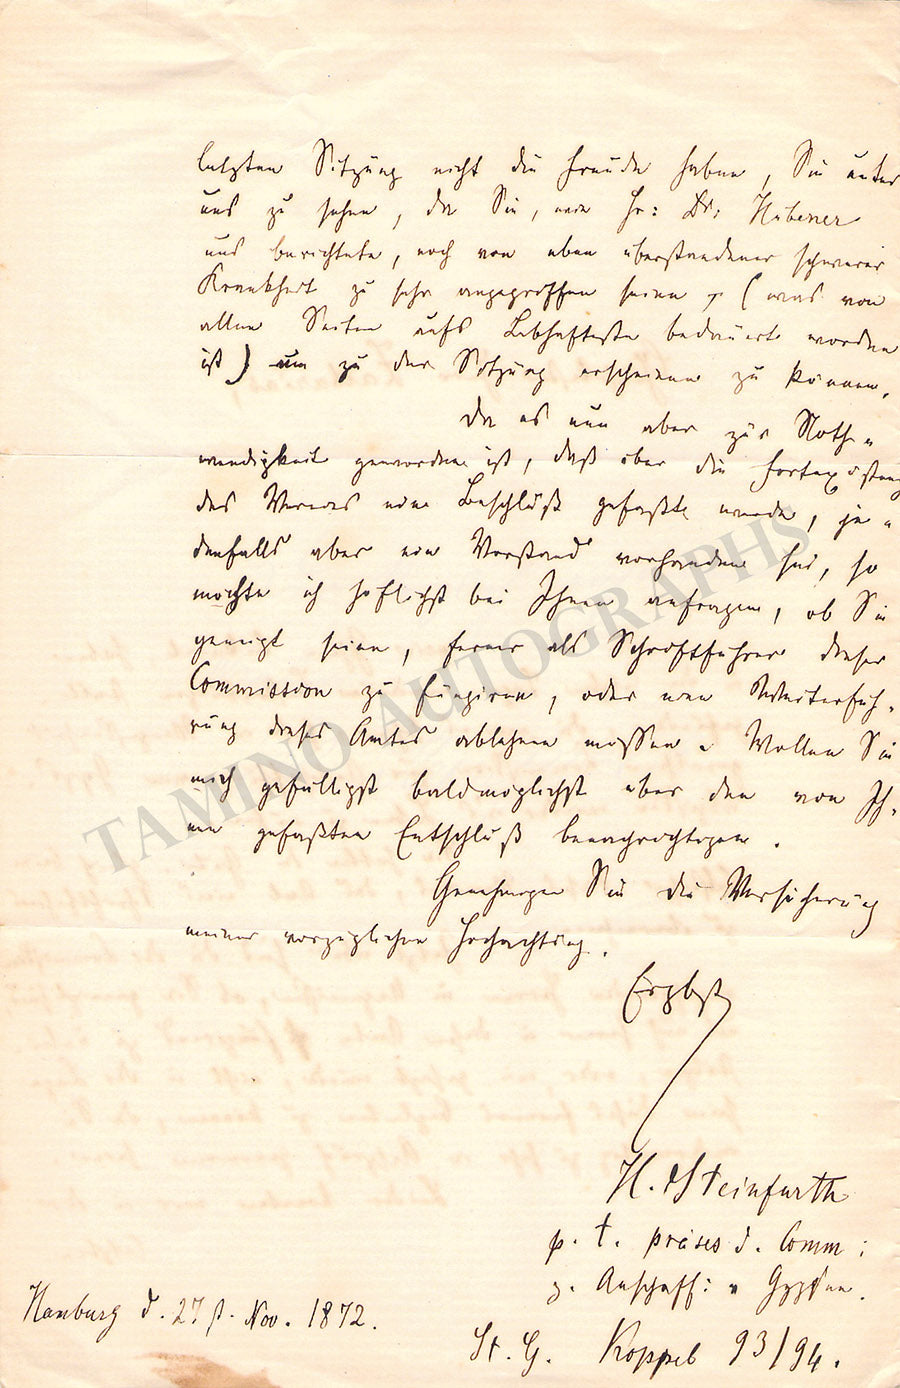 letzten Sitzung nicht die Freude haben, Sie unter
uns zu sehen, da Sie, wie Hr: Dr: Hübener
uns berichtete, noch von eben überstandener schwerer
Krankheit zu sehr angegriffen seien, (was von
allen Seiten aufs Lebhafteste bedauert worden
ist) um zu der Sitzung erscheinen zu können.
Da es nun aber zur Noth-
wendigkeit geworden ist, daß über die Fortexistenz
des Vereins ein Beschluß gefaßt werde, je-
denfalls aber ein Vorstand vorhanden sei, so
möchte ich höflichst bei Ihnen anfragen, ob Sie
geneigt seien, ferner als Schriftführer dieser
Commission zu fungiren, oder eine Weiterfüh-
rung dieses Amtes ablehnen müssen. Wollen Sie
mich gefälligst baldmöglichst über den von Ih-
nen gefaßten Entschluß benachrichtigen.
Genehmigen Sie die Versicherung
meiner vorzüglichen Hochachtung.
Ergbst
H. Steinfurth
p. t. präses d. Comm:
z. Anschaff: v Gypsen.
Hamburg d. 27 st. Nov. 1872.
St. G. Koppel 93/94.
TAMINO AUTOGRAPHS